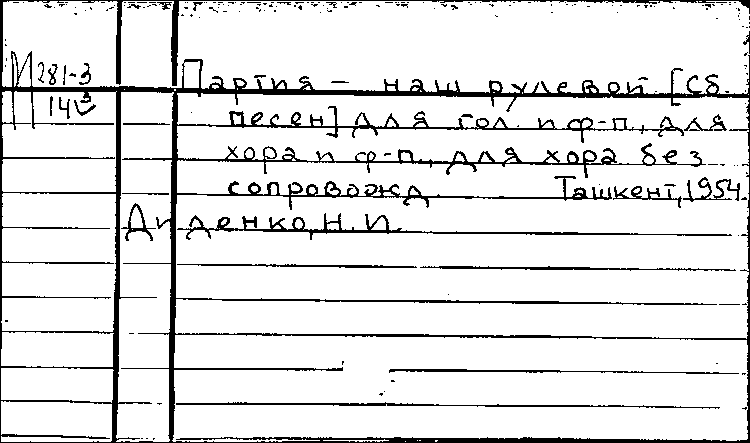 М 281-3
143
Партия — наш рулевой [Сб.
песен] для гол и ф-п., для
хора и ф-п., для хора без
сопровожд. Ташкент, 1954.
Диденко, Н. И.